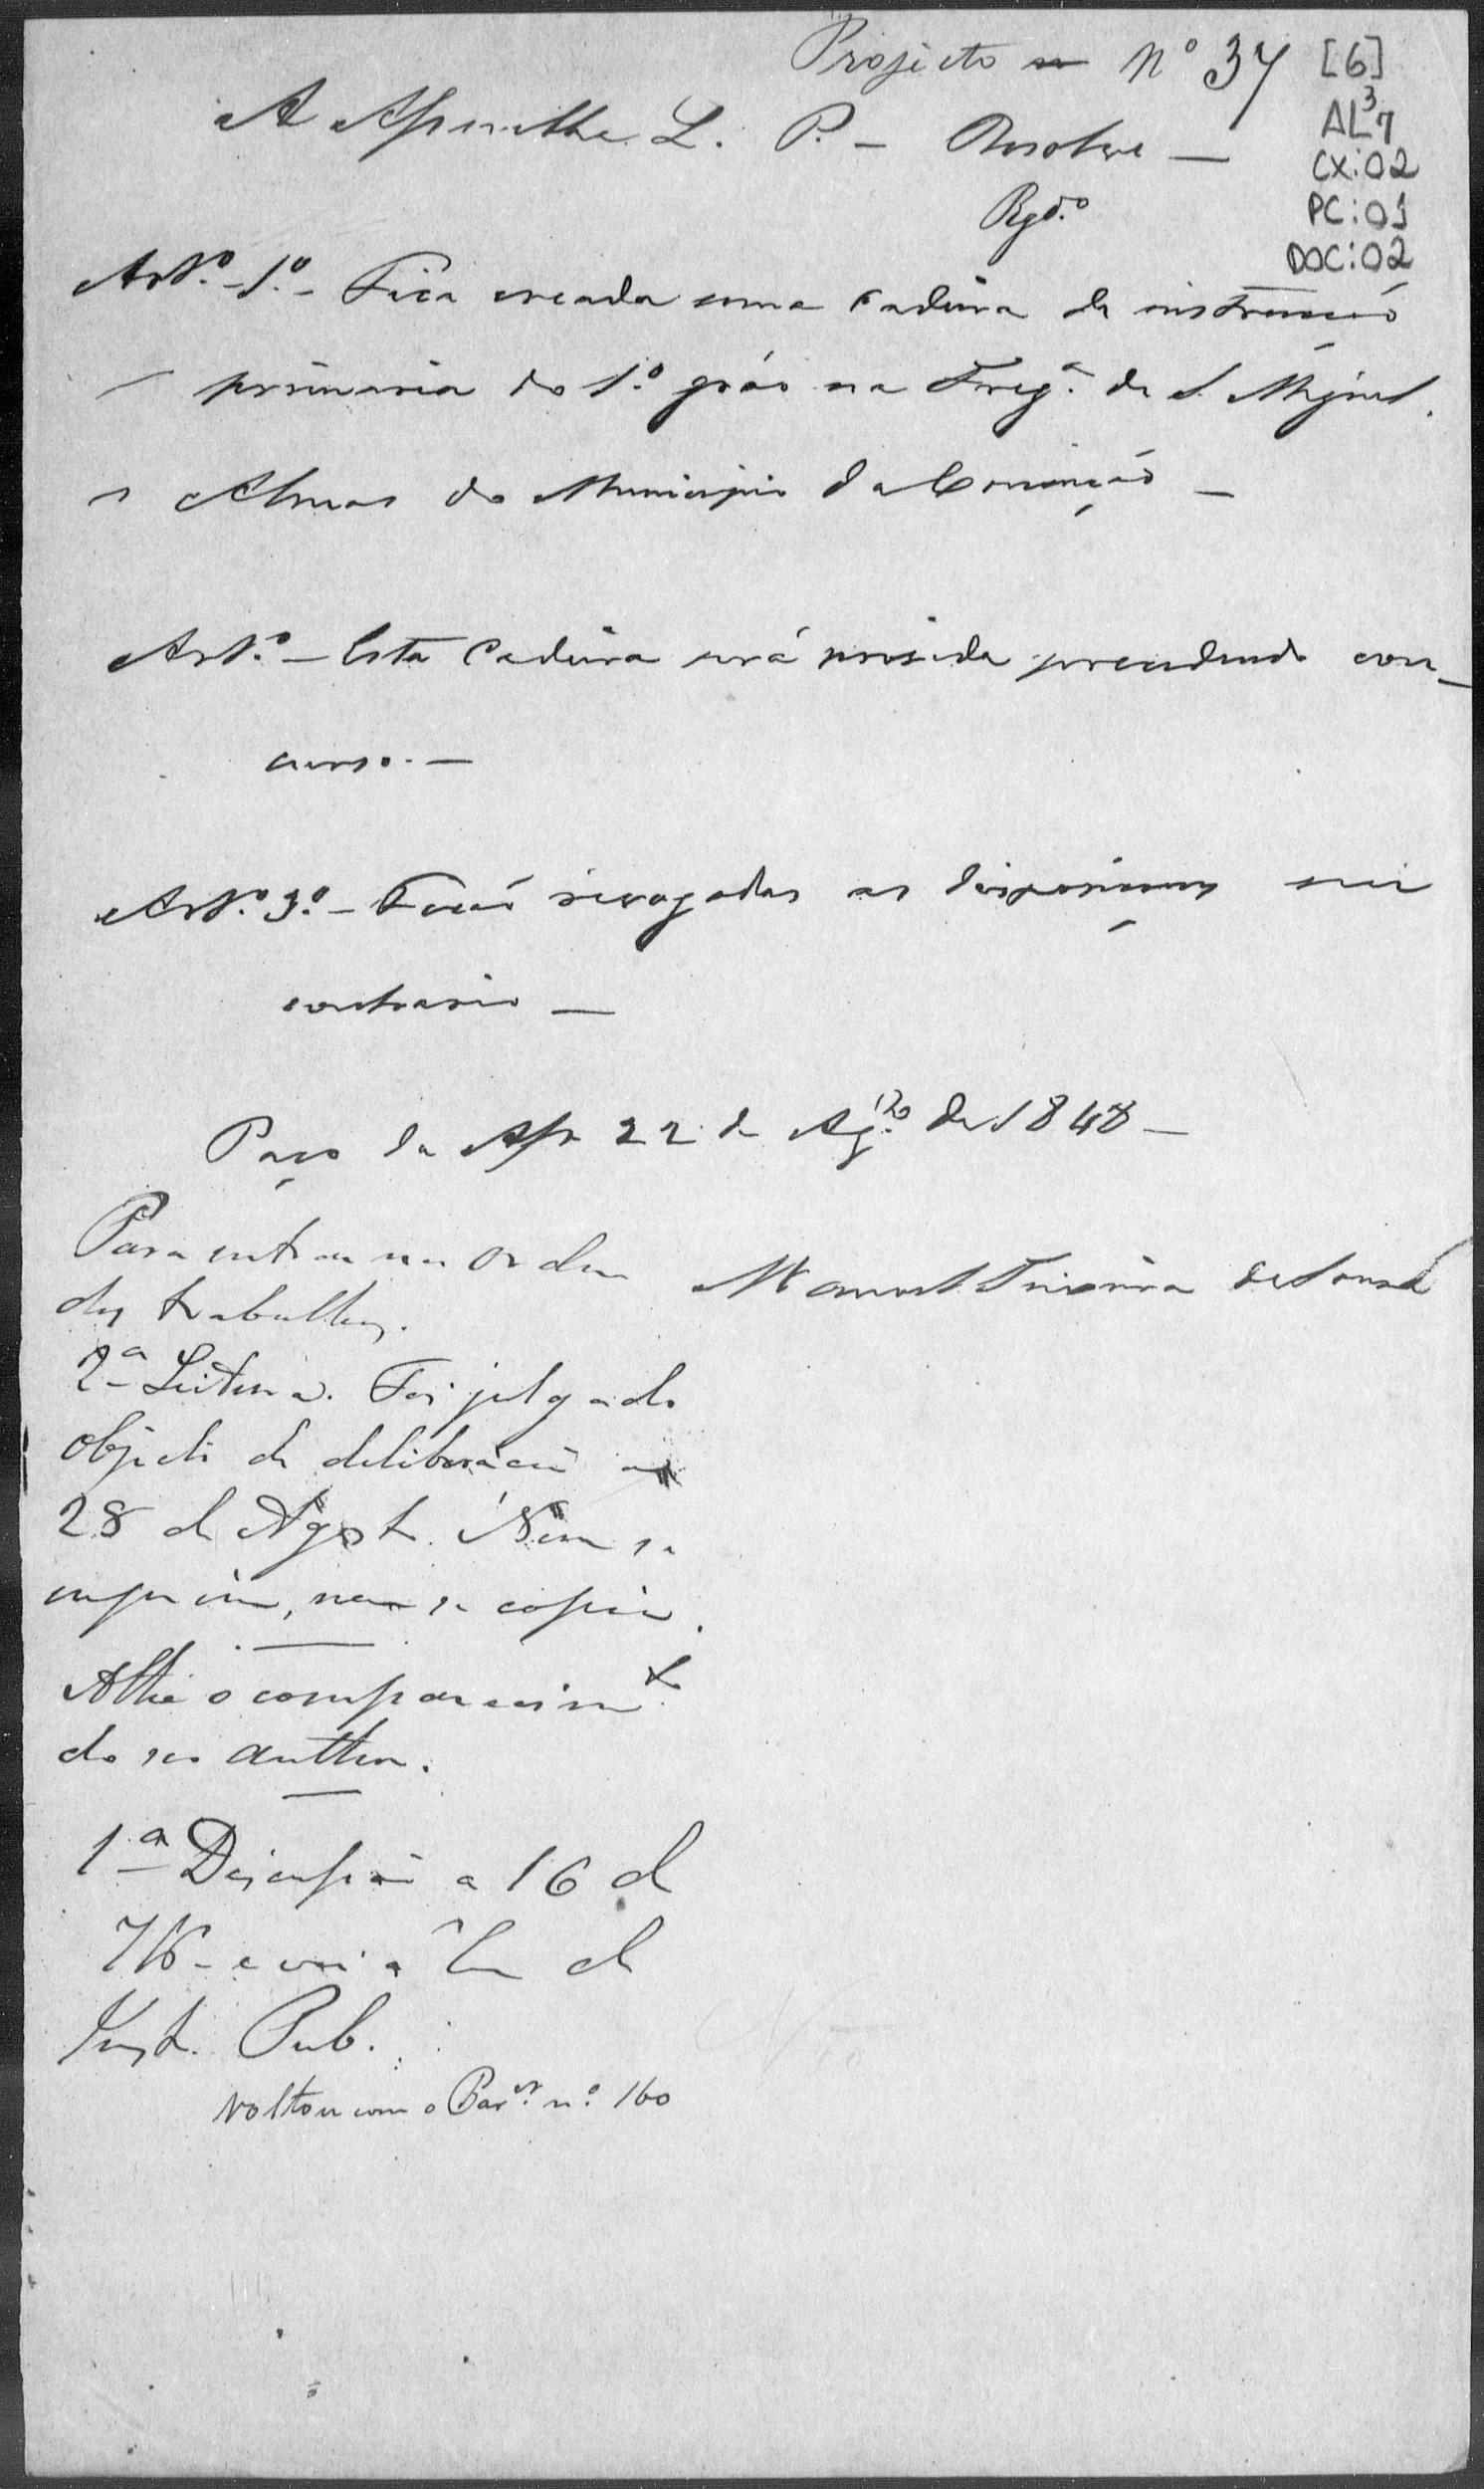 Projecto nº 37 [6]
AL³7
CX:02
PC:01
DOC:02
A Assemblea L. P. – Resolve –
Rgdº
Artº 1º – Fica creada uma Cadeira de instrucção
primaria do 1º gráo na Fregª de S. Miguel
e Almas do Municipio da Conceição –
Artº – Esta Cadeira será provida precedendo con-
curso. –
Artº 3º – Ficão revogadas as disposiçoens em
contrario –
Paço da Ass 22 de Agto de 1848 –
Manoel Teixeira de Souza
Para entrar na Ordem
dos trabalhos.
2ª Leitura. Foi julgado
objecto de deliberação a
28 d Agost. Nem se
imprime, nem se copia.
Athe o comparecimto
do seo Author.
1ª Discussão a 16 d
e vai a d
Inst. Pub.
Voltou com o Parer nº 160